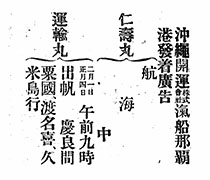 沖繩開運株式會社汽船那覇
港發着廣告
仁壽丸
航海中
運輸丸
二月一日
正月四日
午前九時
出帆 慶良間
粟國渡名喜、久
米島行